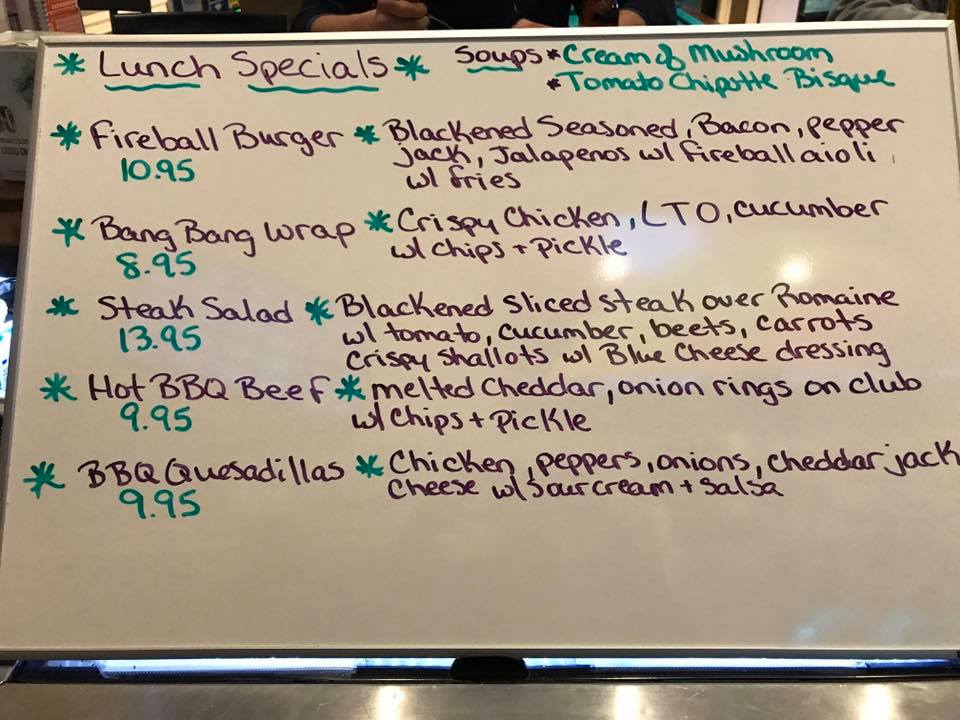 * Lunch Specials *
Soups * Cream of Mushroom
* Tomato Chipotle Bisque
* Fireball Burger * Blackened Seasoned, Bacon, pepper
jack, Jalapenos w/ fireball aioli
10.95
w/ fries
* Bang Bang Wrap * Crispy Chicken, LTO, cucumber
w/ chips + Pickle
8.95
* Steak Salad * Blackened sliced steak over Romaine
13.95
w/ tomato, cucumber, beets, carrots
crispy shallots w/ Blue Cheese dressing
* Hot BBQ Beef * melted Cheddar, onion rings on club
9.95
w/ Chips + Pickle
* BBQ Quesadillas * Chicken, peppers, onions, cheddar jack
9.95
Cheese w/ sour cream + salsa